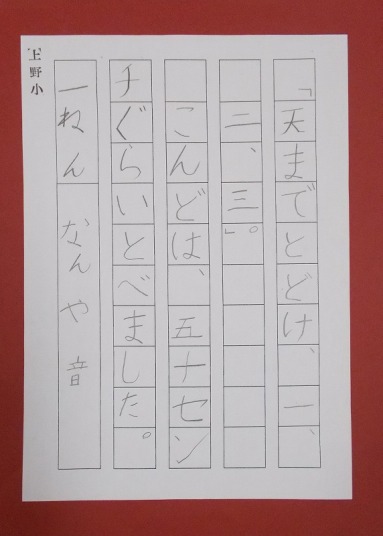 「天までとどけ、一、
二、三。」
こんどは、五十セン
チぐらいとべました。
一ねん　なんや　音
上野小